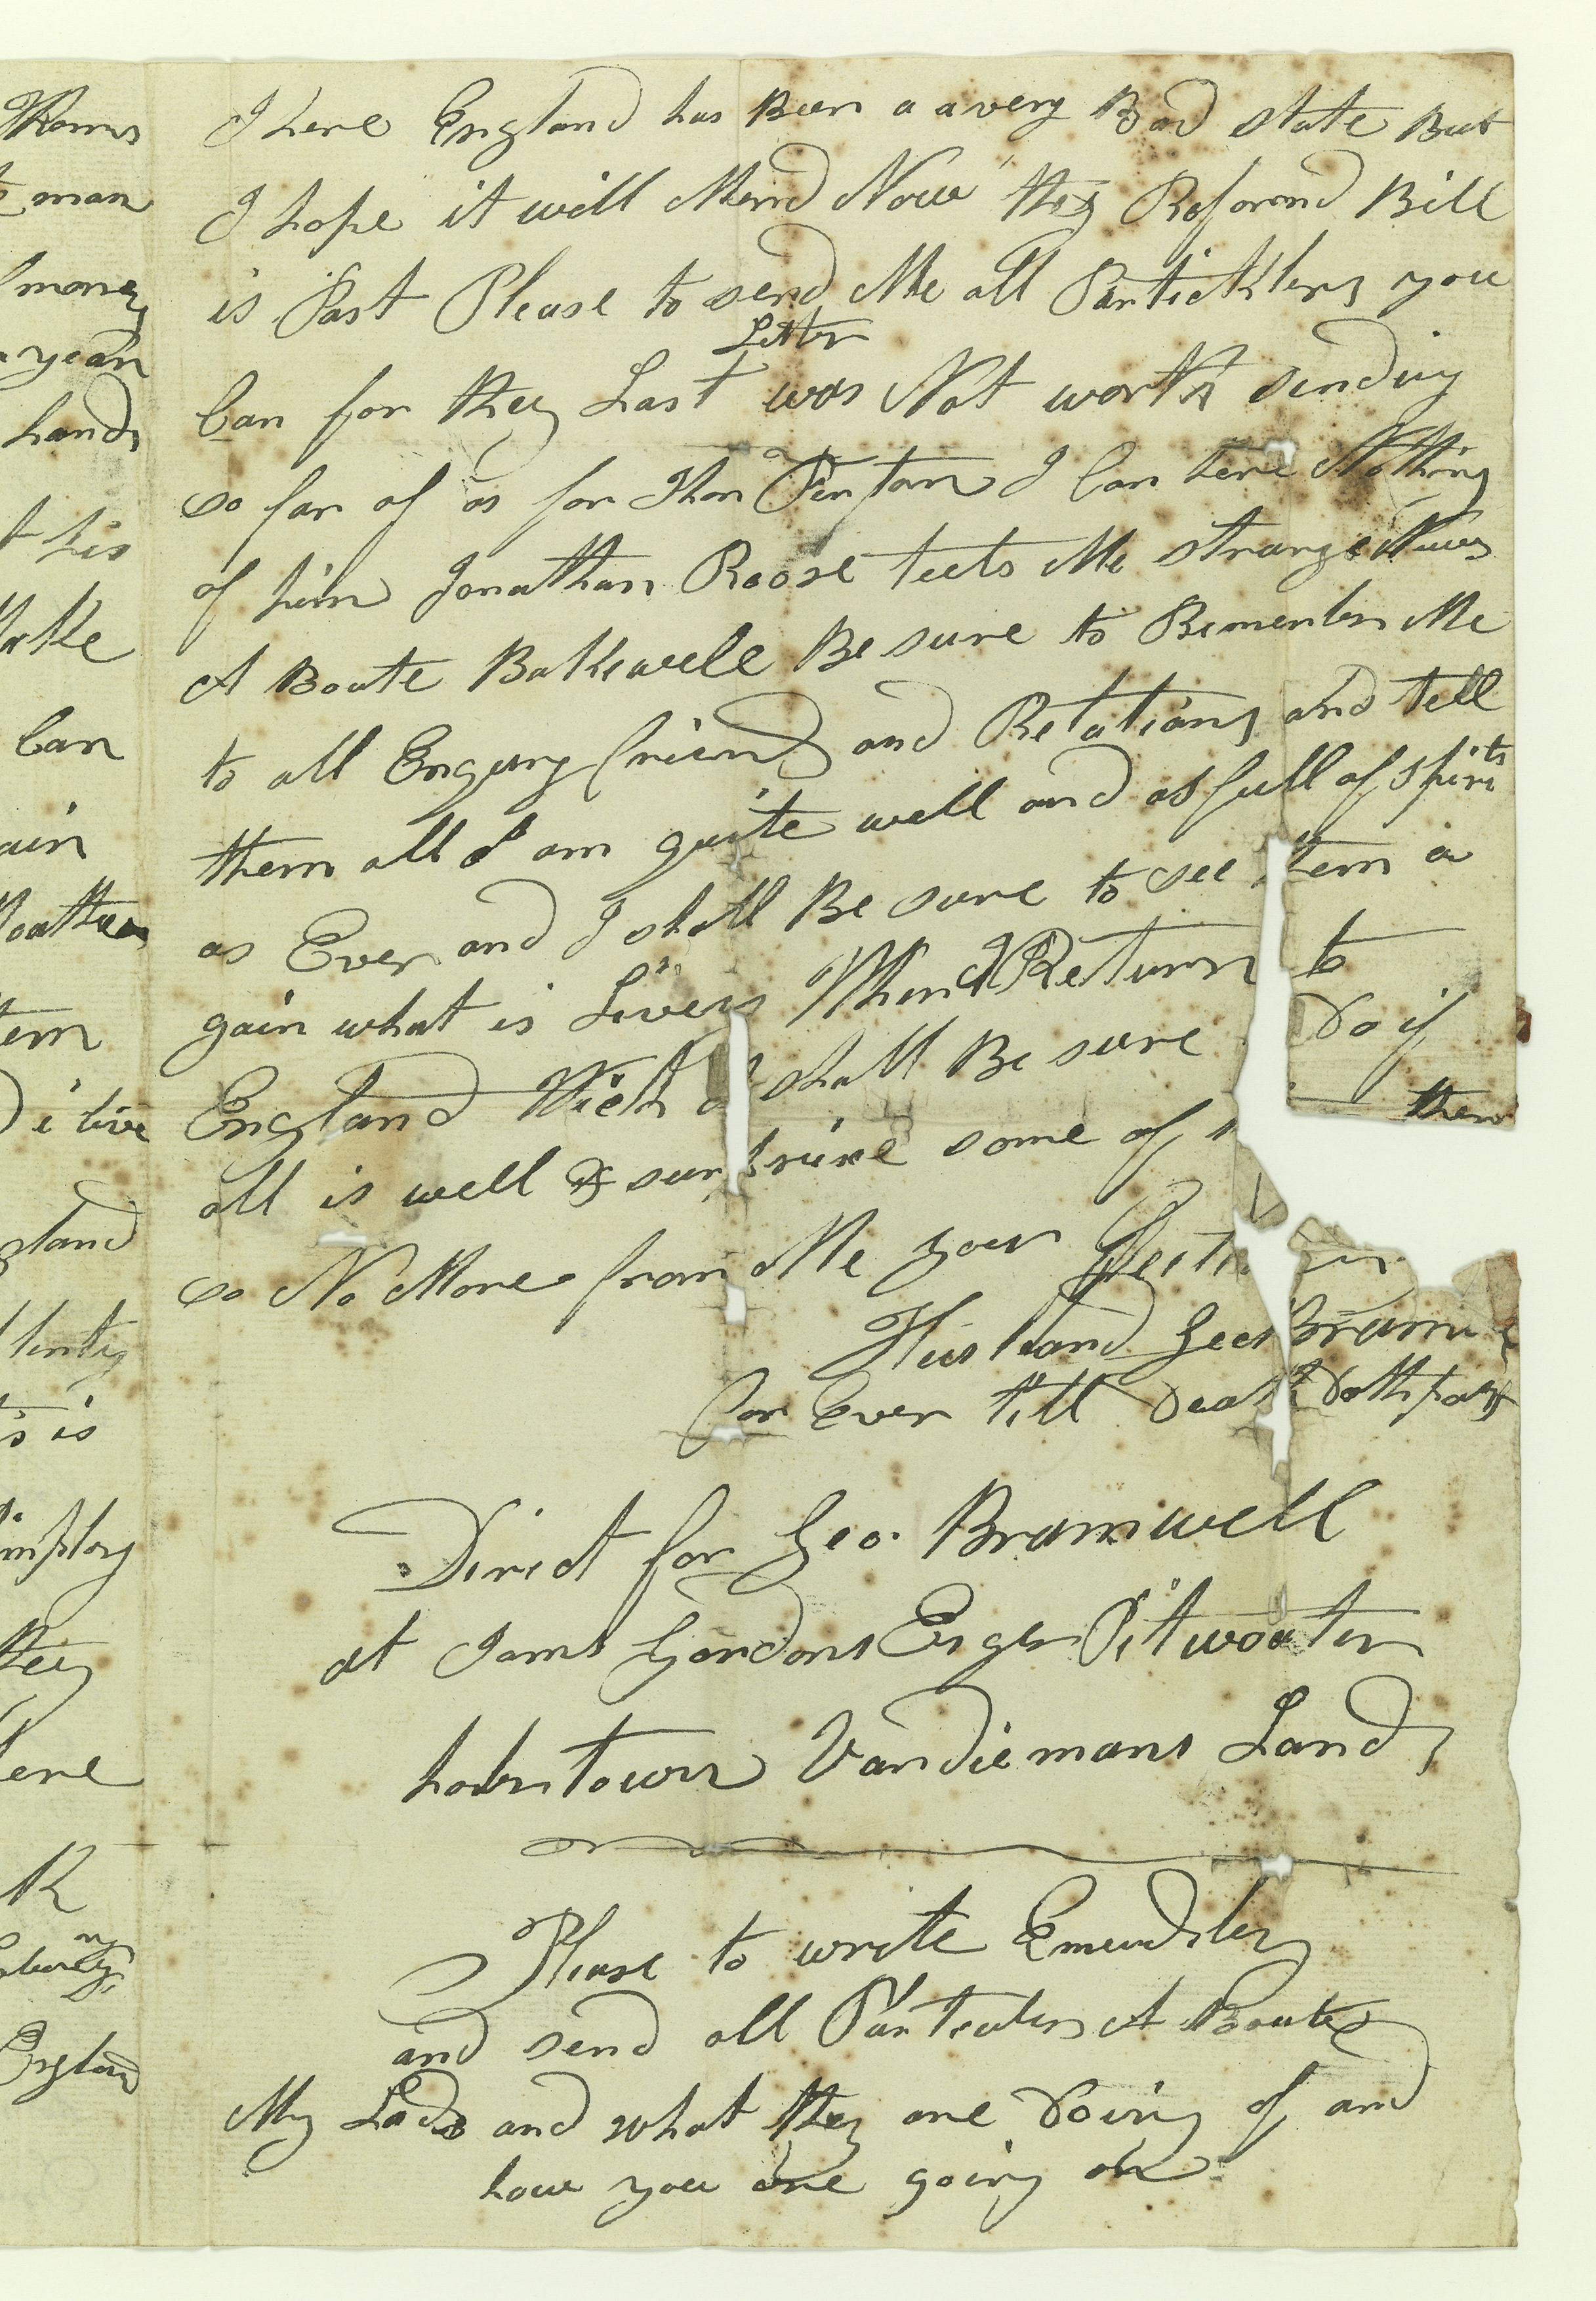 I here England has Been a a very Bad state But
I hope it will Mend Now they Reformd Bill
is Past Please to send Me all Particklers you
Letter
Can for they Last was Not worth sending
so far of as for Thos Fentom I Can here Nothing
of him Jonathan Roose teels Me strange News
A Boute Bakewell Be sure to Rimember Me
to all Enqury friends and Relations and tell
them all I am quite well and as full of spirits
as Ever and I shall Be sure to see tem a
gain what is Livers When I Return to
England Wich I shall Be sure to Do if
all is well & surprise some of them
so No More from Me your
Husband Geo Bramwell
for Ever till Death Doth part
Direct for Geo. Bramwell
at James Gordons Esqr Pitwater
hobertown Vandiemans Land
Please to write Emeadiley
and send all Particulers A Boute
My Lads and what they are Doing of and
how you are going on
Thoms
man
money
year
hands
t his
Make
Can
ain
tem
i live
gland
Plenty
is
imploy
they
here
England